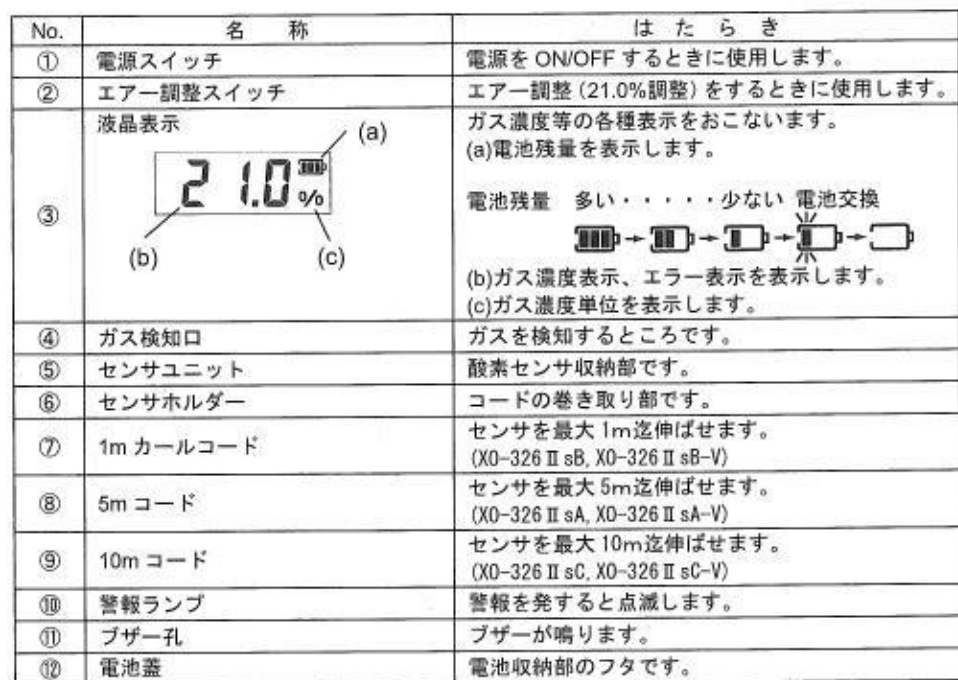 No. 名 称 はたらき
① 電源スイッチ 電源を ON/OFF するときに使用します。
② エアー調整スイッチ エアー調整（21.0%調整）をするときに使用します。
③ 液晶表示
(a)
21.0 %
(b) (c)
ガス濃度等の各種表示をおこないます。
(a)電池残量を表示します。
電池残量 多い・・・・・少ない 電池交換
(b)ガス濃度表示、エラー表示を表示します。
(c)ガス濃度単位を表示します。
④ ガス検知口 ガスを検知するところです。
⑤ センサユニット 酸素センサ収納部です。
⑥ センサホルダー コードの巻き取り部です。
⑦ 1m カールコード センサを最大 1m迄伸ばせます。
(XO-326ⅡsB, XO-326ⅡsB-V)
⑧ 5m コード センサを最大 5m迄伸ばせます。
(XO-326ⅡsA, XO-326ⅡsA-V)
⑨ 10m コード センサを最大 10m迄伸ばせます。
(XO-326ⅡsC, XO-326ⅡsC-V)
⑩ 警報ランプ 警報を発すると点滅します。
⑪ ブザー孔 ブザーが鳴ります。
⑫ 電池蓋 電池収納部のフタです。